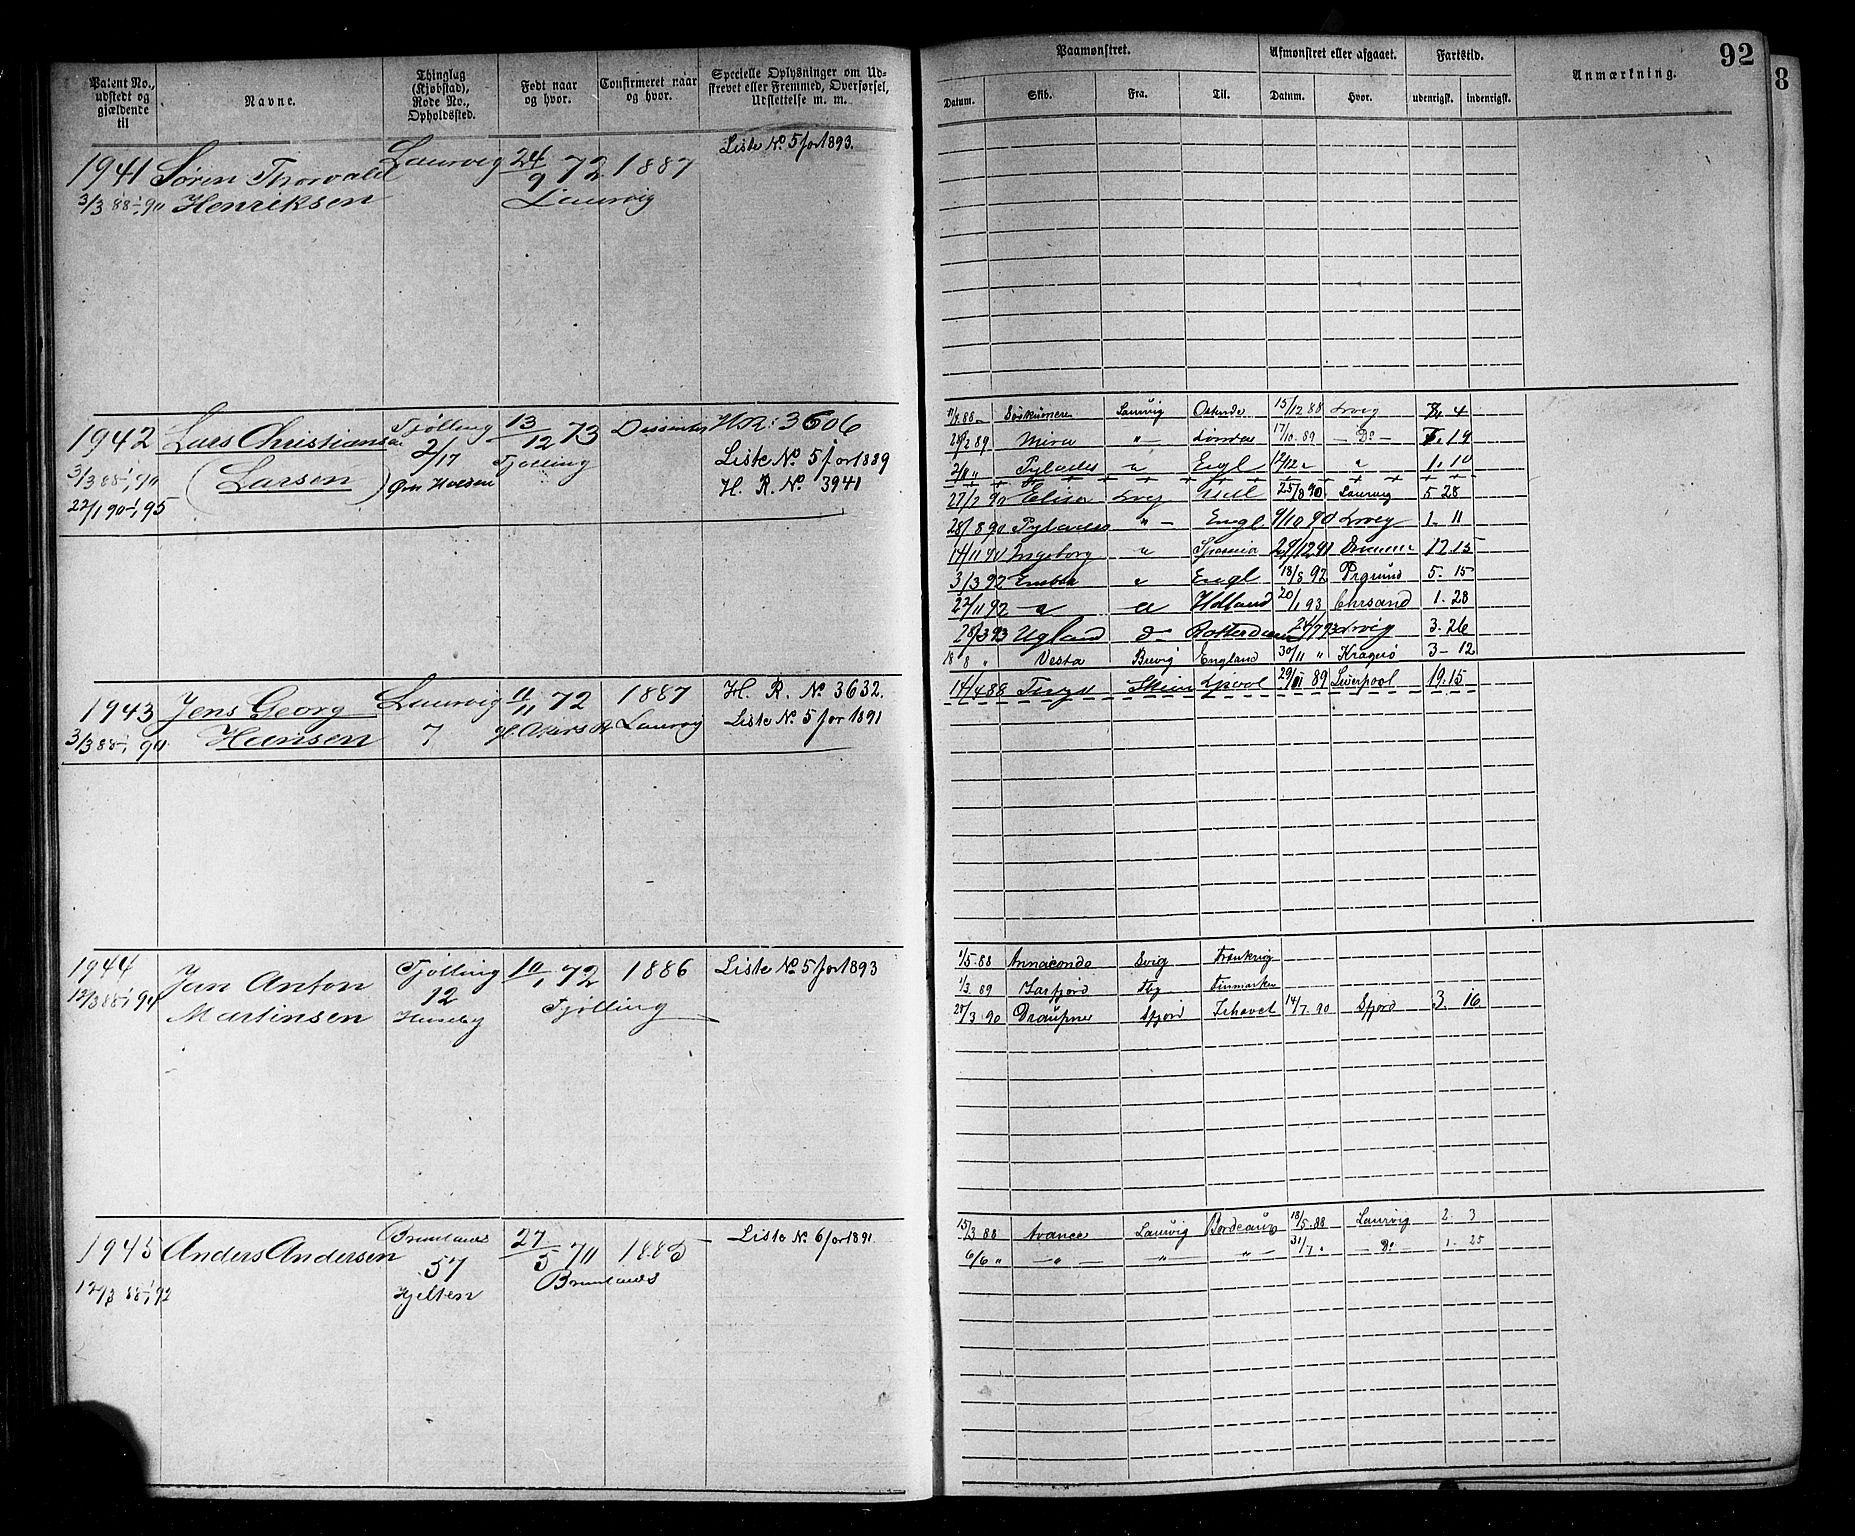 Patent No., udstedt og gjældende til
Navne.
Thinglag (Kjøbstad), Rode No., Opholdssted.
Født naar og hvor.
Confirmeret naar og hvor.
Specielle Oplysninger om Udskrevet eller Fremmed, Overførsel, Udslettelse m. m.
1941 Søren Thorvald Laurvig 24/9 72 1887 Liste No. 5 for 1893.
3/3 88 1/1 90 Henriksen Laurvig
1942 Lars Christiansen Tjølling 13/12 73 Dissenter H.R: 3606
3/3 88 1/1 90 (Larsen) 2/17 Tjølling Liste No. 5 for 1889
22/1 90 1/1 95 H. R. No. 3941
1943 Jens Georg Laurvig 11/11 72 1887 H. R. No. 3632.
3/3 88 1/1 90 Hansen 7 Laurvig Liste No. 5 for 1891
1944 Jan Anton Tjølling 10/1 72 1886 Liste No. 5 for 1893
12/3 88 1/1 94 Martinsen 12 Huseby Tjølling
1945 Anders Andersen Brunlanes 27/5 70 1885 Liste No. 6 for 1891
12/3 88 1/1 92 57 Hjelten Brunlanes
92
8
Paamønstret.
Afmønstret eller afgaaet.
Fartstid.
Anmærkning.
Datum. Skib. Fra. Til. Datum. Hvor. udenrigsk. indenrigsk.
Laurvig Ostende 15/12 88 Lrvig 4
28/2 89 Mira " London 17/10 89 Do 19
2/11 " Pylades " Engl 12/12 " " 1. 10
27/2 90 Elise Lrvig 25/8 90 Laurvig 5 28
28/8 90 Pylades " Engl 9/10 90 Lrvig 1. 11
14/11 90 Ingeborg " Spania 29/12 91 Drammen
3/3 92 " Engl 18/8 92 Prgrund 5. 15
22/11 92 " " Holland 20/1 93 Chrsand 1. 28
28/3 93 Ugland Do Rotterdam 24/7 93 Lrvig 3. 26
18/8 " Vesta Brevig England 30/11 " Kragerö 3- 12
14/4 88 Skien Lpool 29/11 89 Liverpool 19. 15
1/5 88 Annaconda Svig Frankrig
1/3 89 Tbg Finmarken
28/3 90 Draupner Sfjord Ishavet 14/7. 90 Sfjord 3. 16
15/3 88 Avance Laurvig Bordeaux 18/5. 88 Laurvig 2. 3
6/6 " " " " 31/7. " Do 1. 25